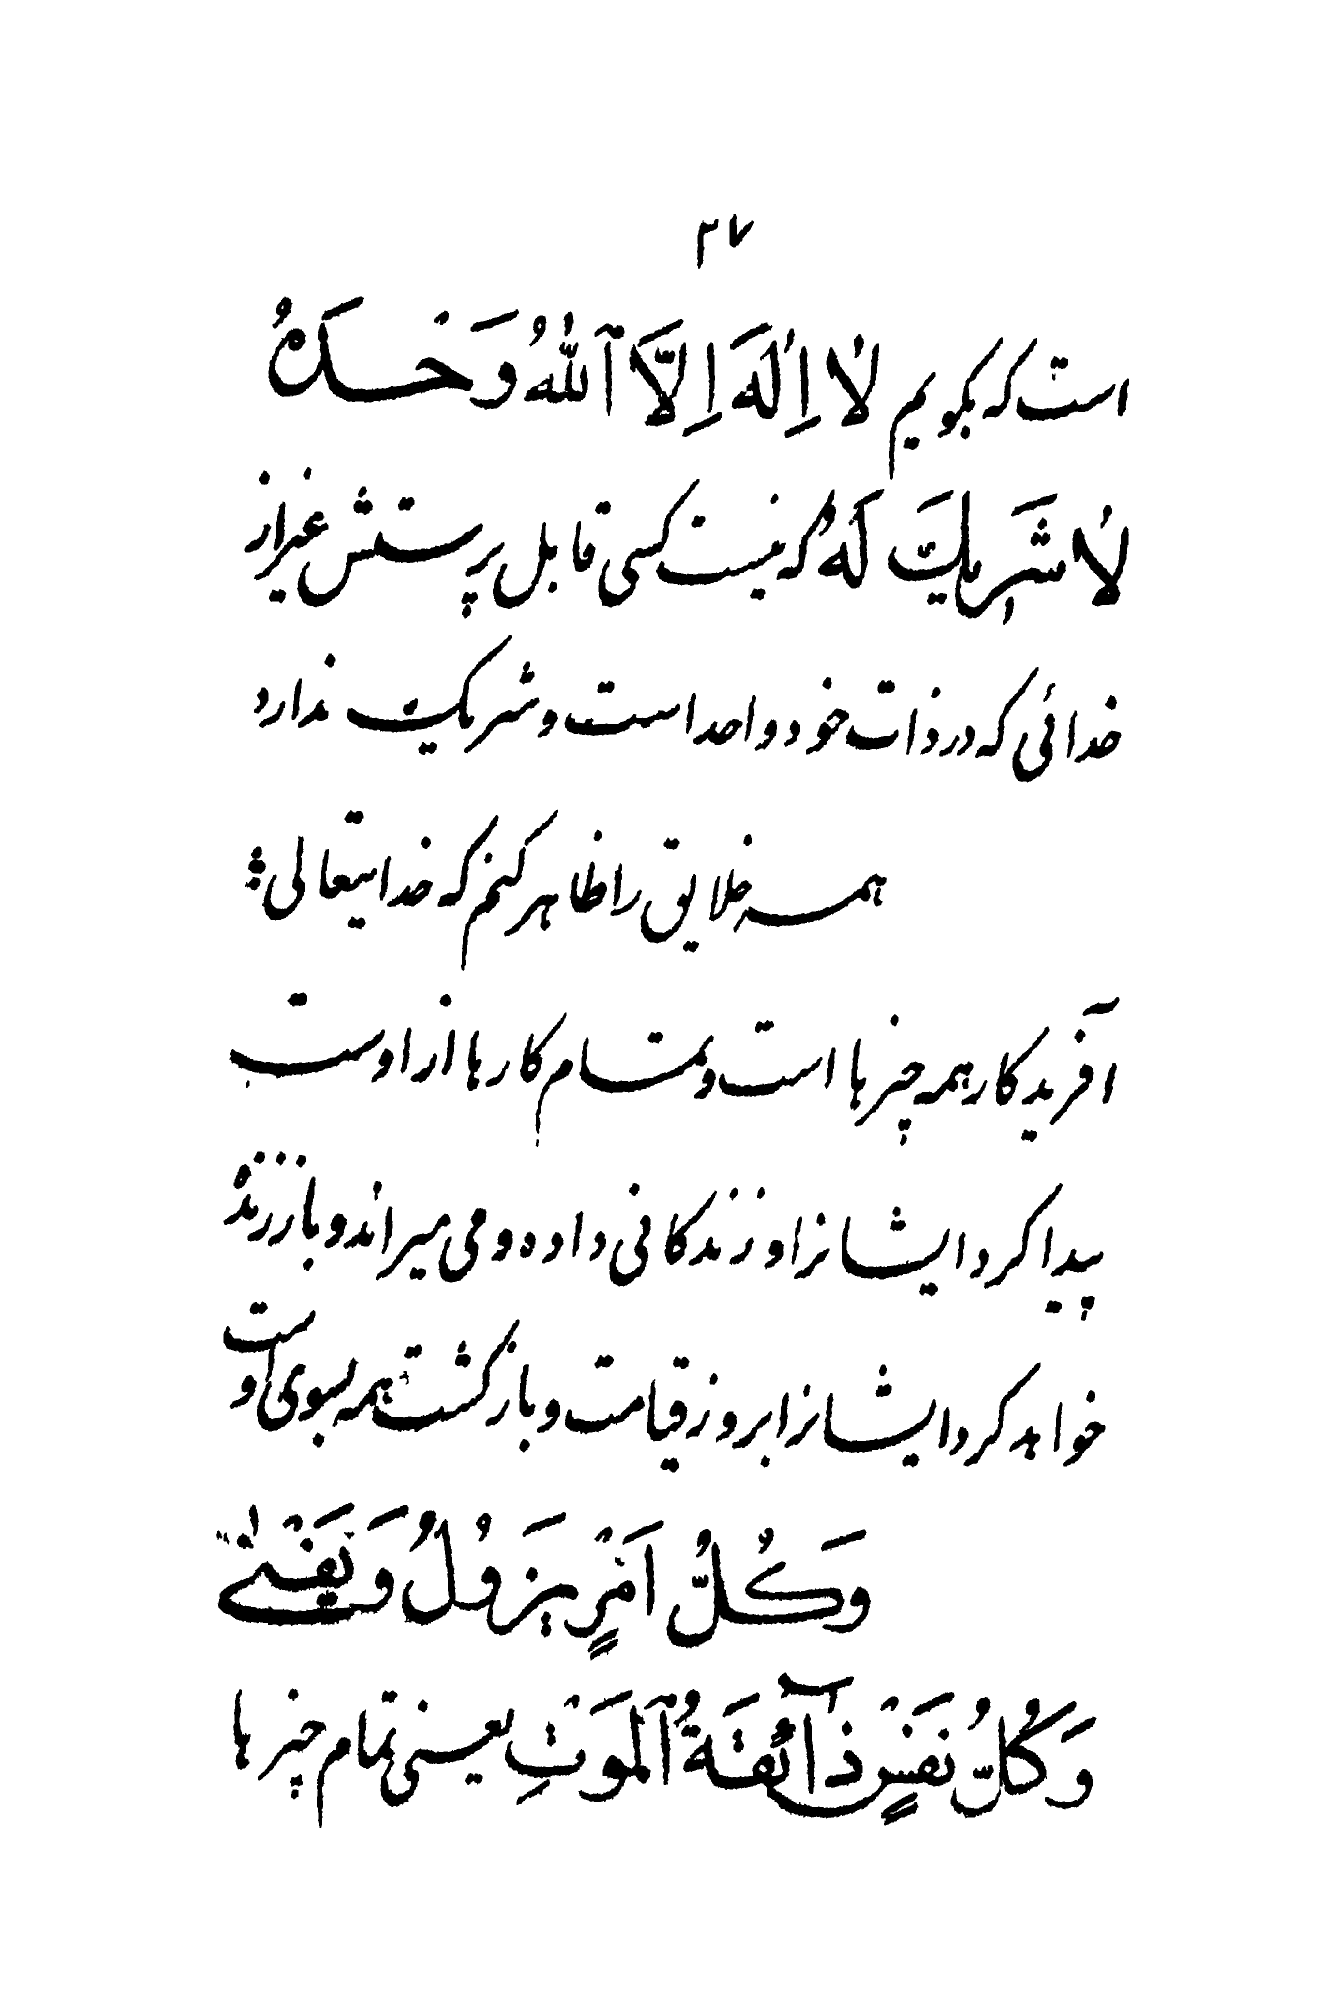 ۲۷
است که بگویم لاٰ اِلٰهَ اِلاَّ ٱللّٰهُ وَحْدَهُ
لاٰ شَریٖكَ لَهُ که نیست کسی قابل پرستش غیراز
خدائی که درذات خود واحداست وشریک ندارد
همه خلایق راظاهرکنم که خدایتعالی
آفریدکارهمه چیزها است وتمام کارها ازاوست
پیداکرد ایشانرا و زندکانی داده ومی میراند وباززنده
خواهدکرد ایشانرا بروزقیامت وبازکشت همه بسوی اوست
وَكُلُّ اَمْرٍ یَزوُلُ وَیَفْنٰی
وَكُلُّ نَفْسٍ ذآئِقَةُ ٱلْمَوْتِ یعنی تمام چیزها